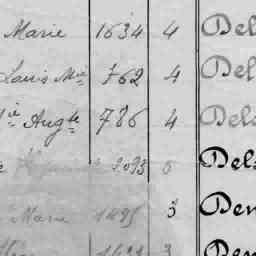 Marie 1634 4 Del
Louis Mie 762 4 Del
Mie Augte 786 4 Del
2093 6 Del
Marie 1495 3 Den
3 Den